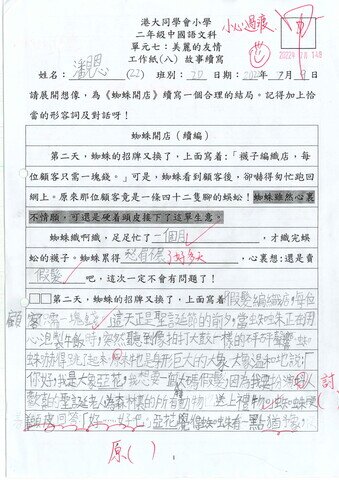 港大同學會小學
二年級中國語文科
單元七：美麗的友情
工作紙(八) 故事續寫
小心過底
姓名：潘思 (22) 班別：2D 日期：2022年7月9日
請展開想像，為《蜘蛛開店》續寫一個合理的結局。記得加上恰
當的形容詞及對話呀！
蜘蛛開店（續編）
第二天，蜘蛛的招牌又換了，上面寫着：「襪子編織店，每
位顧客只需一塊錢。」可是，蜘蛛看到顧客後，卻嚇得匆忙跑回
網上。原來那位顧客竟是一條四十二隻腳的蜈蚣！蜘蛛雖然心裏
不情願，可還是硬着頭皮接下了這單生意。
蜘蛛織啊織，足足忙了一個月，才織完蜈
蚣的襪子。蜘蛛累得，心裏想：還是賣
假髮吧，這次一定不會有問題了！
第二天，蜘蛛的招牌又換了，上面寫着「假髮編織店，每位
顧客只需一塊錢。」這天正是聖誕節的前夕，當蜘蛛正在用
心泡製午飯時，突然聽到像拍打大鼓一樣的呯呯聲響，蜘
蛛嚇得跳了起來，原來牠是身形巨大的大象，大象溫和地說：「
你好，我是大象亞花，我想要一套大碼假髮，因為我要扮演
聖誕老人為森林裏的所有動物送上禮物。」蜘蛛
頭皮回答「好……好吧。」亞花覺得蜘蛛有一點猶
原( )